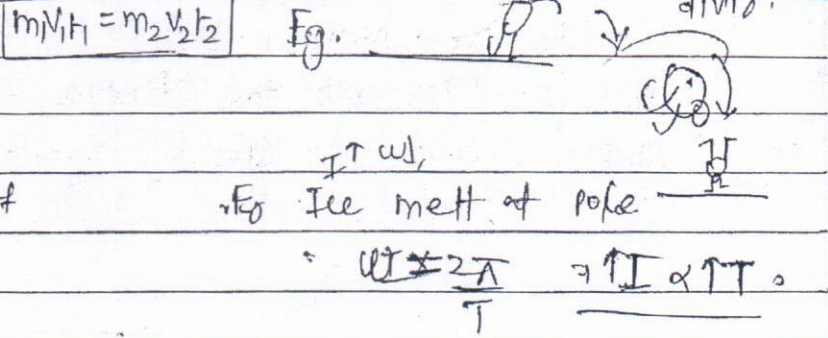 m₁v₁r₁ = m₂v₂r₂ Eg.
I↑ ω↓,
Eg Ice melt at pole
ω = 2π/T ⇒ ↑I ∝ ↑T.